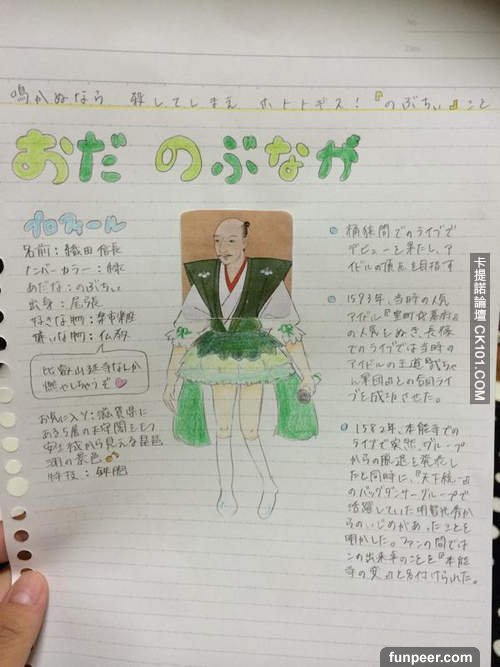 鳴かぬなら 殺してしまえ ホトトギス!『のぶちぃ』こと
おだ のぶなが
プロフィール
名前:織田信長
ナンバーカラー:緑
あだな:のぶちぃ
出身:尾張
好きな物:楽市楽座
嫌いな物:仏教
比叡山延暦寺なんか
燃やしちゃうぞ♡
お気に入り:滋賀県に
ある5層の天守閣をもつ
安土城から見える琵琶
湖の景色
特技:鉄砲
桶狭間でのライブで
デビューを果たし、ア
イドルの頂点を目指す
1573年、当時の人気
アイドル『室町☆幕府』
の人気をしのぎ、長篠
でのライブでは当時の
アイドルの王道『武ちゃ
ん軍団』との合同ライ
ブを成功させた。
1582年、本能寺での
ライブで突然、グループ
からの脱退を発表し
たと同時に、『天下統一』
のバックダンサーグループで
活躍していた明智光秀か
らのいじめがあったことを
明かした。ファンの間では
この出来事のことを『本能
寺の変』と名付けられた。
卡提諾論壇 CK101.com
funpeer.com